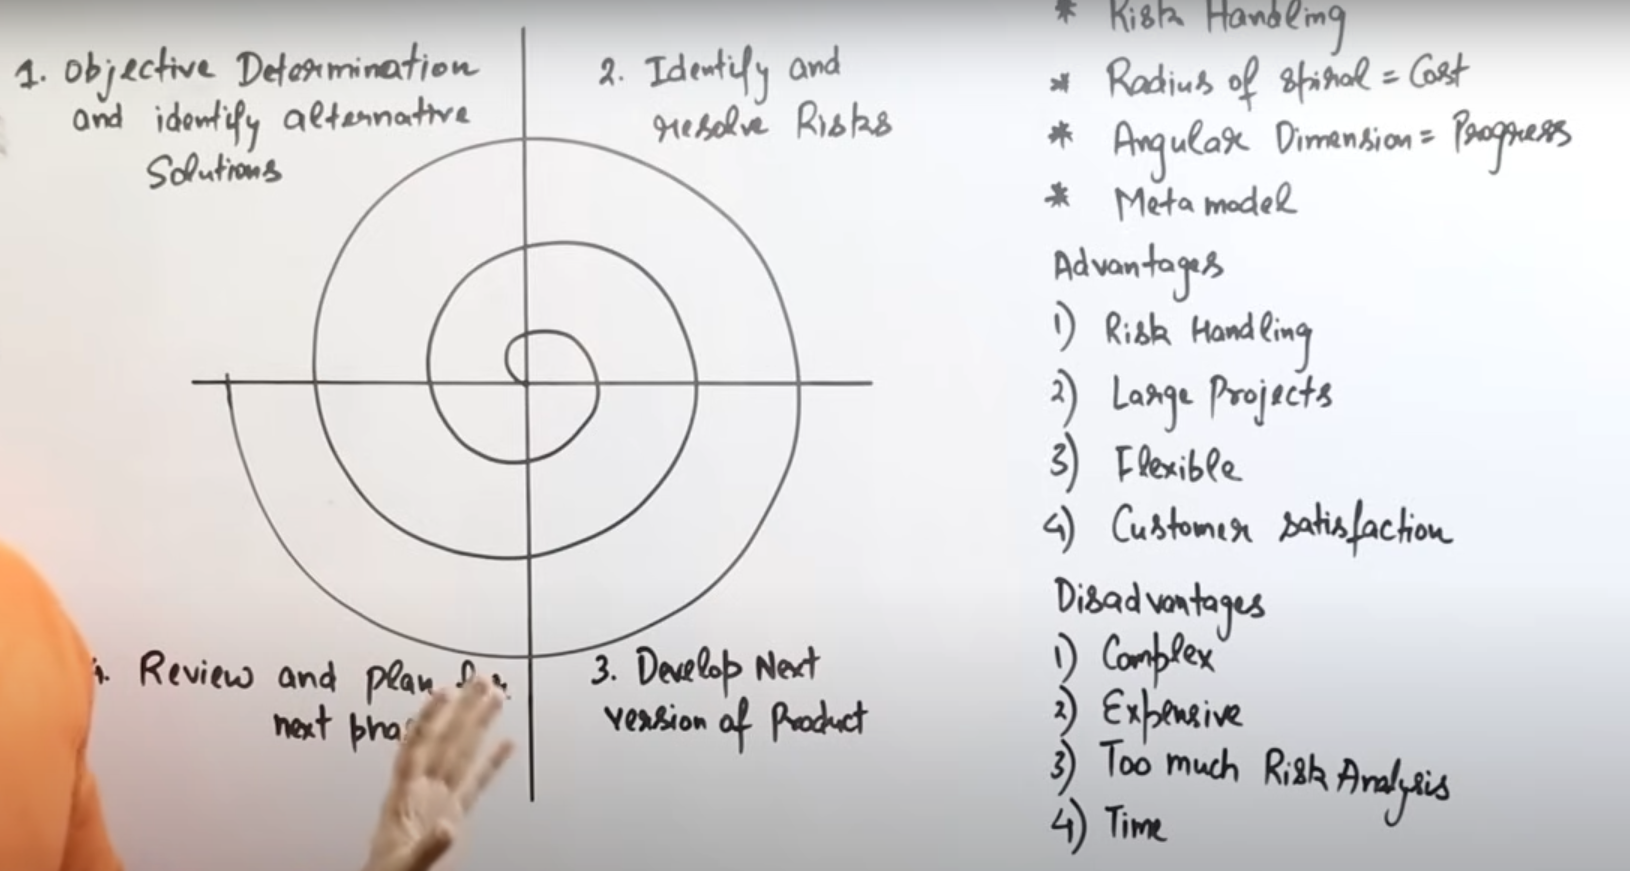 1. Objective Determination
and identify alternative
Solutions
2. Identify and
resolve Risks
3. Develop Next
version of Product
Review and plan
next
* Risk Handling
* Radius of spiral = Cost
* Angular Dimension = Progress
* Meta model
Advantages
1) Risk Handling
2) Large Projects
3) Flexible
4) Customer satisfaction
Disadvantages
1) Complex
2) Expensive
3) Too much Risk Analysis
4) Time